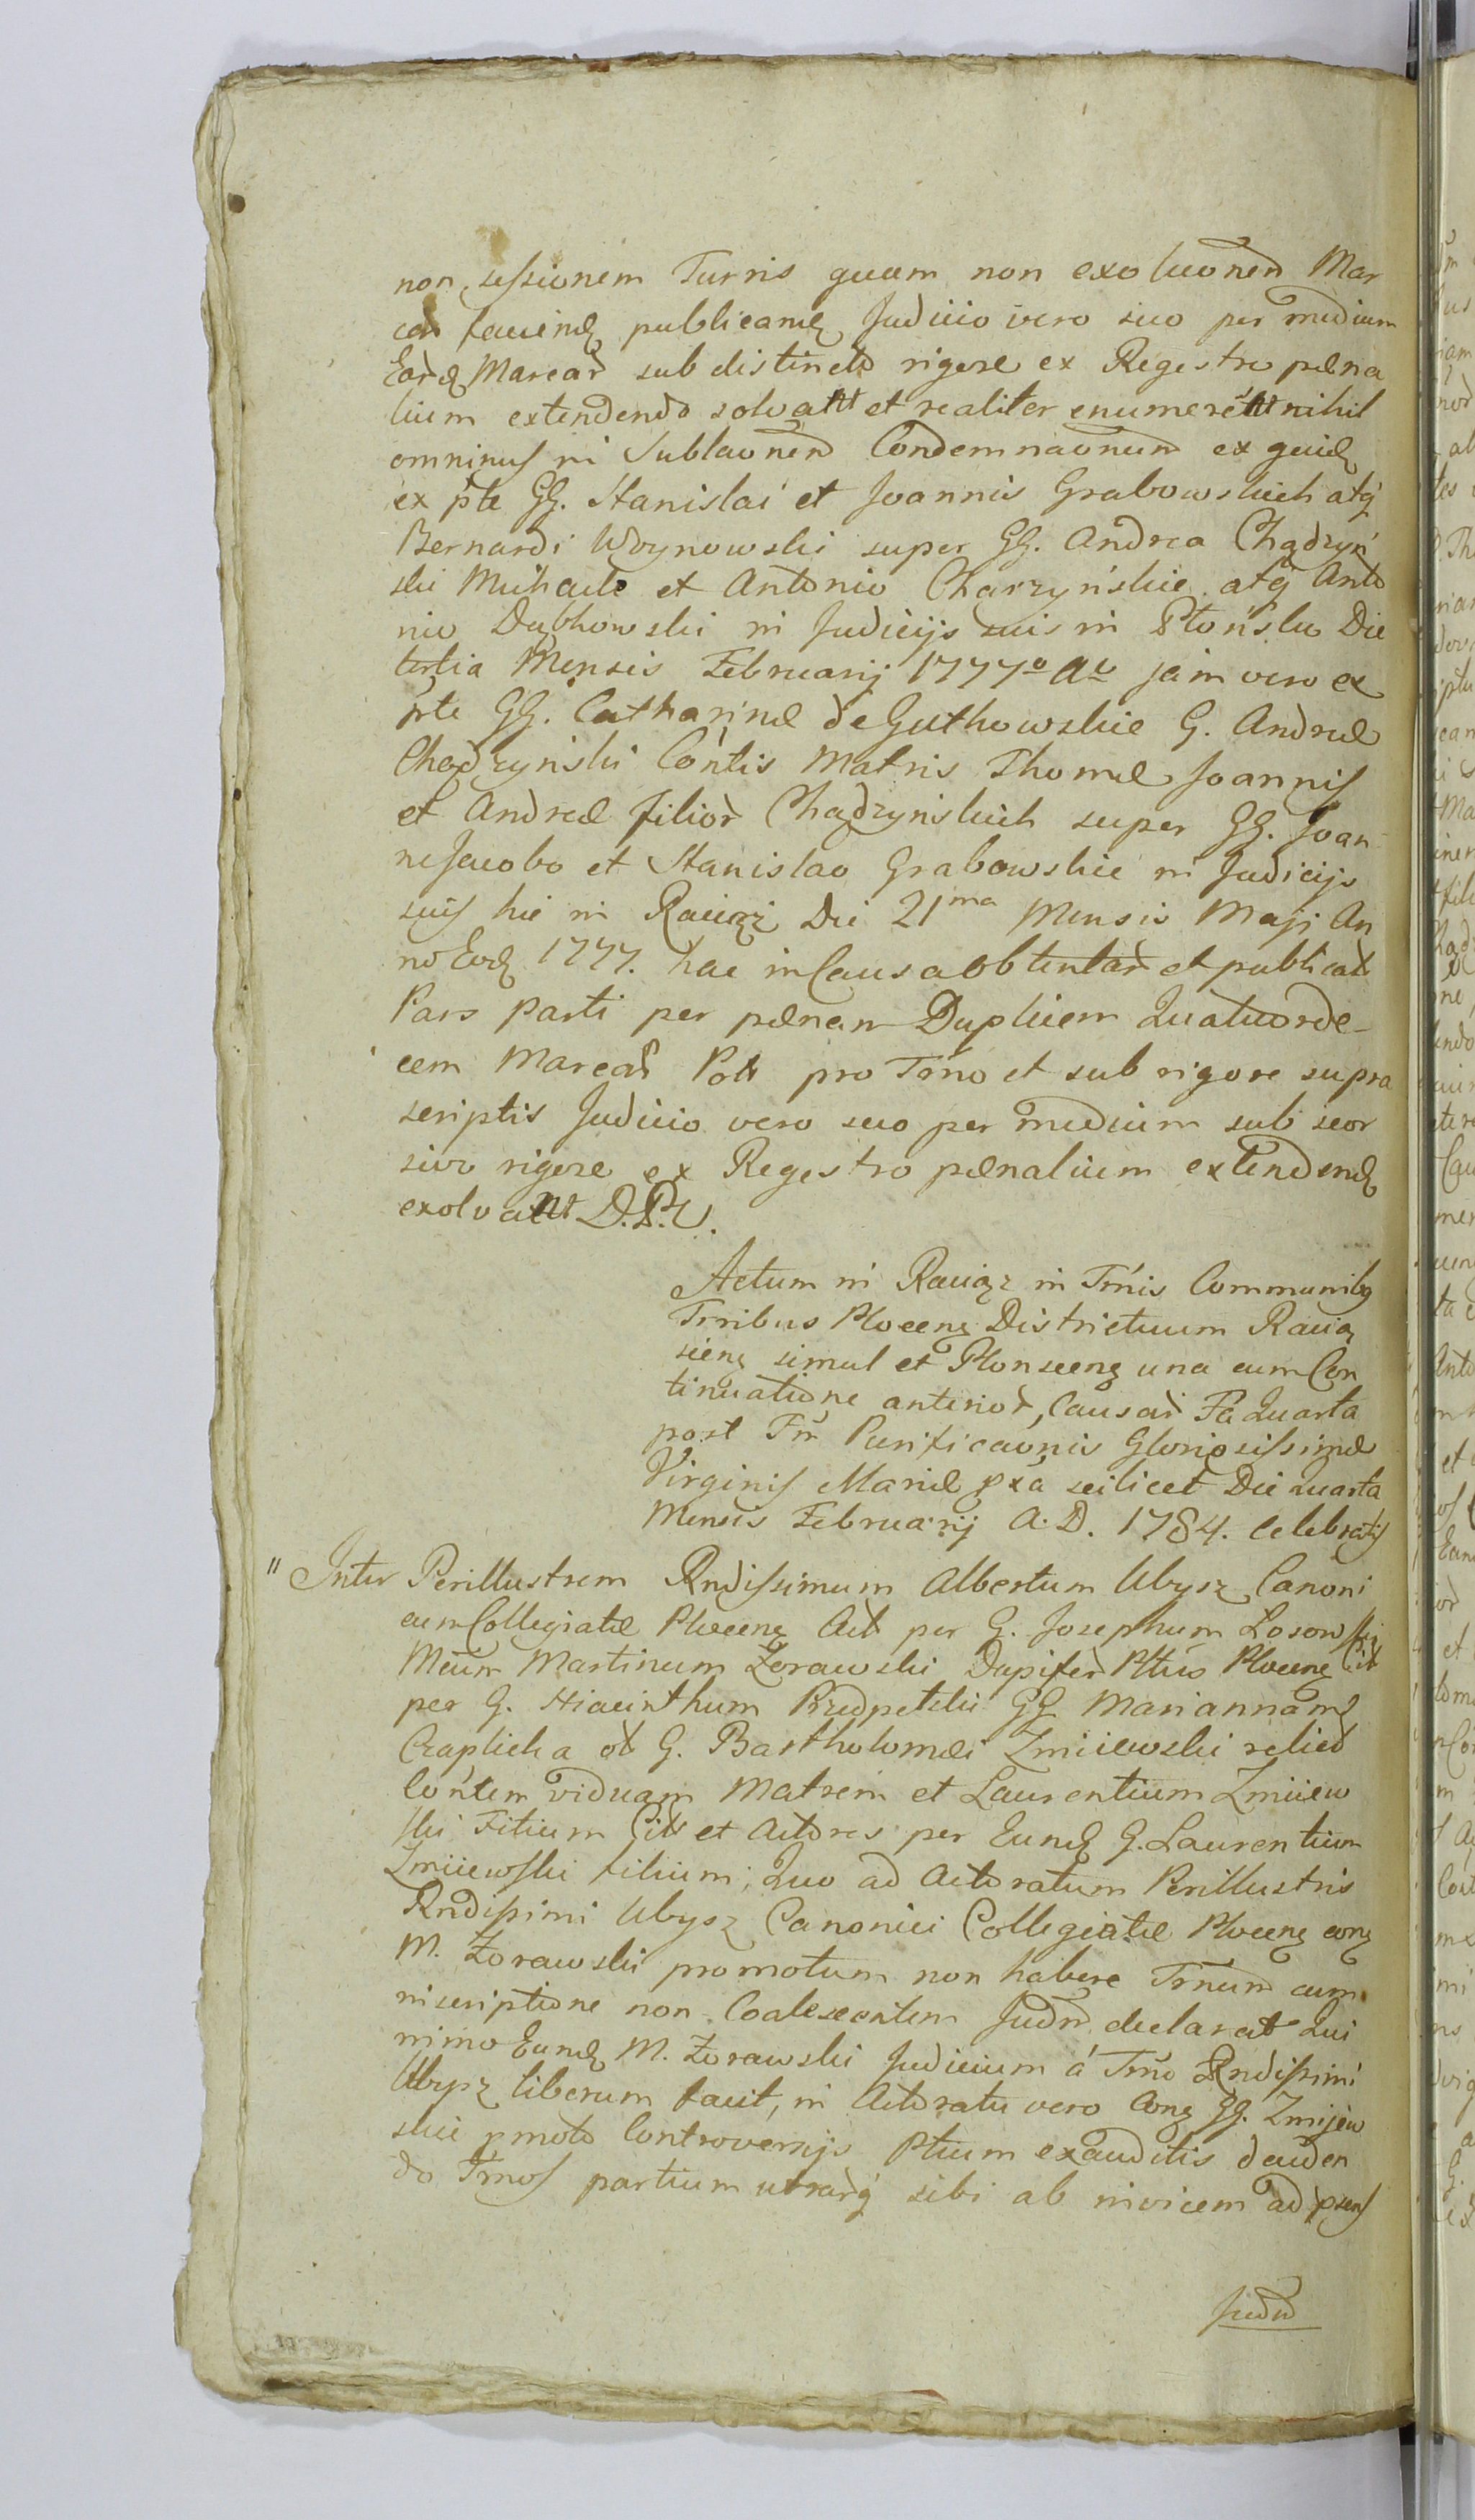 non sessionem Turris quam non exoluonem Mar
car faciend publicand Judicio vero suo per medium
Eard Marcar sub distincto rigore ex Regestro pœna
lium extendendo solvant et realiter enumerent nihil
ominus in Sublaonem Condemnaonum ex quid
ex pte GG. Stanislai et Joannis Grabowskich atq
Bernardi Woynowski super GG. Andrea Chądzyń
ski Michaele et Antonio Charzyńskie atq Anto
nio Dąbkowski in Judicijs suis in Płońsko Die
tertia Mensis Februarij 1777o Ao jam vero ex
pte GG. Catharinæ de Gutkowskie G. Andreæ
Chądzyński Contis Matris Thomæ Joannis
et Andreæ filior Chądzyńskich super GG. Joan
ne Jacobo et Stanislao Grabowskie in Judicijs
suis hic in Raciąż Die 21ma Mensis Maji An
no Eod 1777. hac in Causa obtentar et publicat
Pars Parti per pœnam Duplicem Quatuorde-
cem Marcar Polt pro Trno et sub rigore supra
scriptis Judicio vero suo per medium sub seor
sivo rigore ex Regestro pœnalium extendend
exolvant D.P.V.
Actum in Raciąż in Trnis Communibq
Trribus Plocenq Districtuum Racią
scienq simul et Plonscenq una cum Con
tinuatione anterior, Causar Fa Quarta
post Fm Purificaonis Gloriosissimæ
Virginis Mariæ pxa scilicet Die Quarta
Mensis Februarij A.D. 1784. celebratis
" Inter Perillustrem Rndissimum Albertum Ubysz Canoni
cum Collegiatæ Plocenq Act per G. Josephum Losowski
Mcum Martinum Zorawski Dapifer Pltus Plocenq Cit
per G. Hiacinthum Przedpełski GG Mariannam
Czaplicka ol G. Bartholomæi Zmiiewski relict
Contem viduam Matrem et Laurentium Zmiiew
ski Filium Cit et Actores per Eund G. Laurentium
Zmiiewski filium; Quo ad Actoratum Perillustris
Rndissimi Ubysz Canonici Collegiatæ Plocenq conq
M. Zorawski promotum non habere Trnum cum
inscriptione non Coalescentem Judm declarat Qui
nimo Eund M. Zorawski Judicium á Trno Rndissimi
Ubysz liberum facit, in Actoratu vero Conq GG. Zmijew
skie pmoto Controversijs Ptium exauditis deciden
do Trnos partium utrarq sibi ab invicem ad psens
Judm